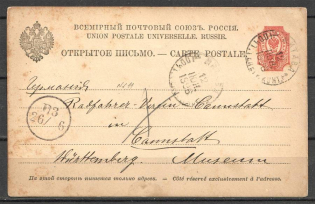 ВСЕМІРНЫЙ ПОЧТОВЫЙ СОЮЗЪ. РОССІЯ.
UNION POSTALE UNIVERSELLE. RUSSIE.
ОТКРЫТОЕ ПИСЬМО. — CARTE POSTALE.
Германия
Radfahrer-Verein Cannstatt
in
Cannstatt
Württemberg. Museum
На этой сторонѣ пишется только адресъ. — Côté réservé exclusivement à l'adresse.